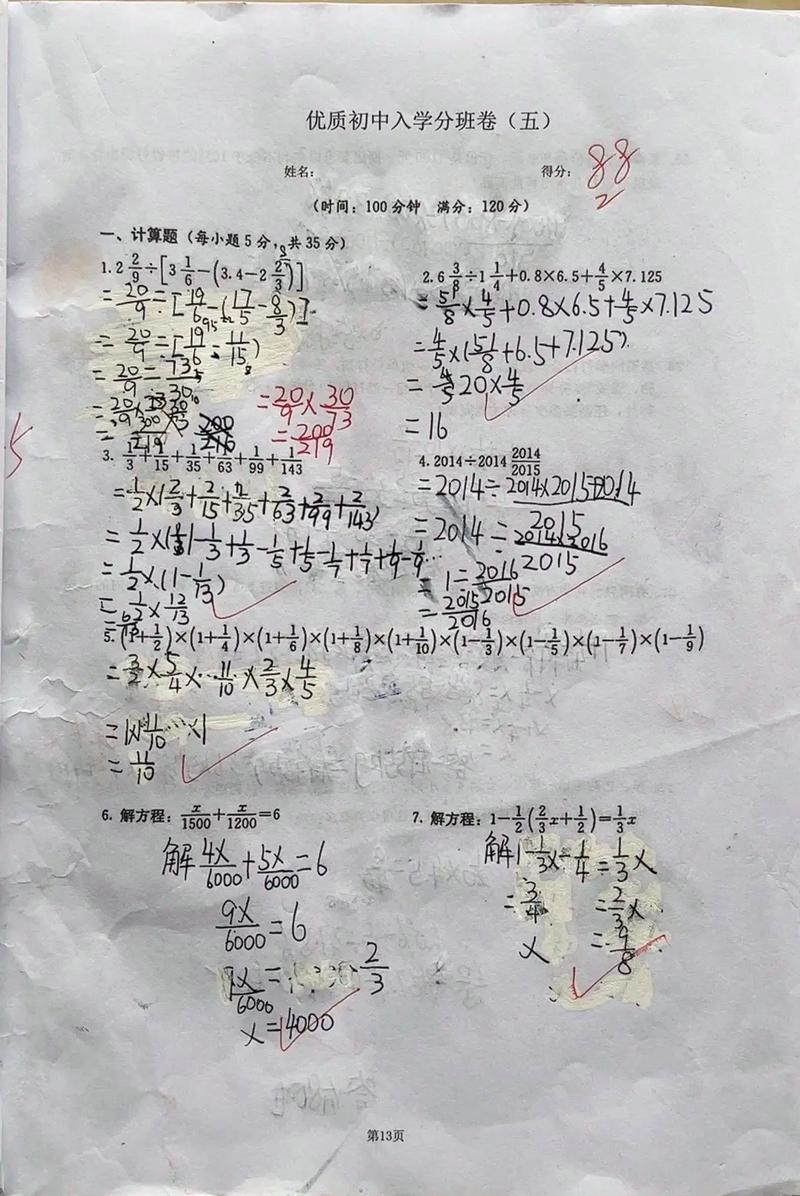 优质初中入学分班卷（五）
姓名：
得分：
88
2
（时间：100分钟 满分：120分）
一、计算题（每小题5分，共35分）
1. 2 2/9÷[3 1/6−(3.4−2 2/3)]
=20/9÷[19/6−(17/5−8/3)]
=20/9÷[19/6−11/15)
=20/9÷73/30
=20/9×30/73
=200/219
2. 6 3/8÷1 1/4+0.8×6.5+4/5×7.125
=51/8×4/5+0.8×6.5+4/5×7.125
=4/5×(51/8+6.5+7.125)
=20×4/5
=16
5
3. 1/3+1/15+1/35+1/63+1/99+1/143
=1/2×(2/3+2/15+2/35+2/63+2/99+2/143)
=1/2×(1−1/3+1/3−1/5+1/5−1/7+1/7+1/9−1/9…
=1/2×(1−1/13)
=1/2×12/13
4. 2014÷2014 2014/2015
=2014÷(2014×2015+2014)/2015
=2014÷(2014×2016)/2015
=1÷2016/2015
=2015/2016
5. (1+1/2)×(1+1/4)×(1+1/6)×(1+1/8)×(1+1/10)×(1−1/3)×(1−1/5)×(1−1/7)×(1−1/9)
=3/2×5/4×…11/10×2/3×4/5
=1×11/10…×1
=11/10
6. 解方程：x/1500+x/1200=6
解4x/6000+5x/6000=6
9x/6000=6
x/6000=2/3
x=4000
7. 解方程：1−1/2(2/3x+1/2)=1/3x
解1−1/3x−1/4=1/3x
3/4=2/3x
x=9/8
第13页